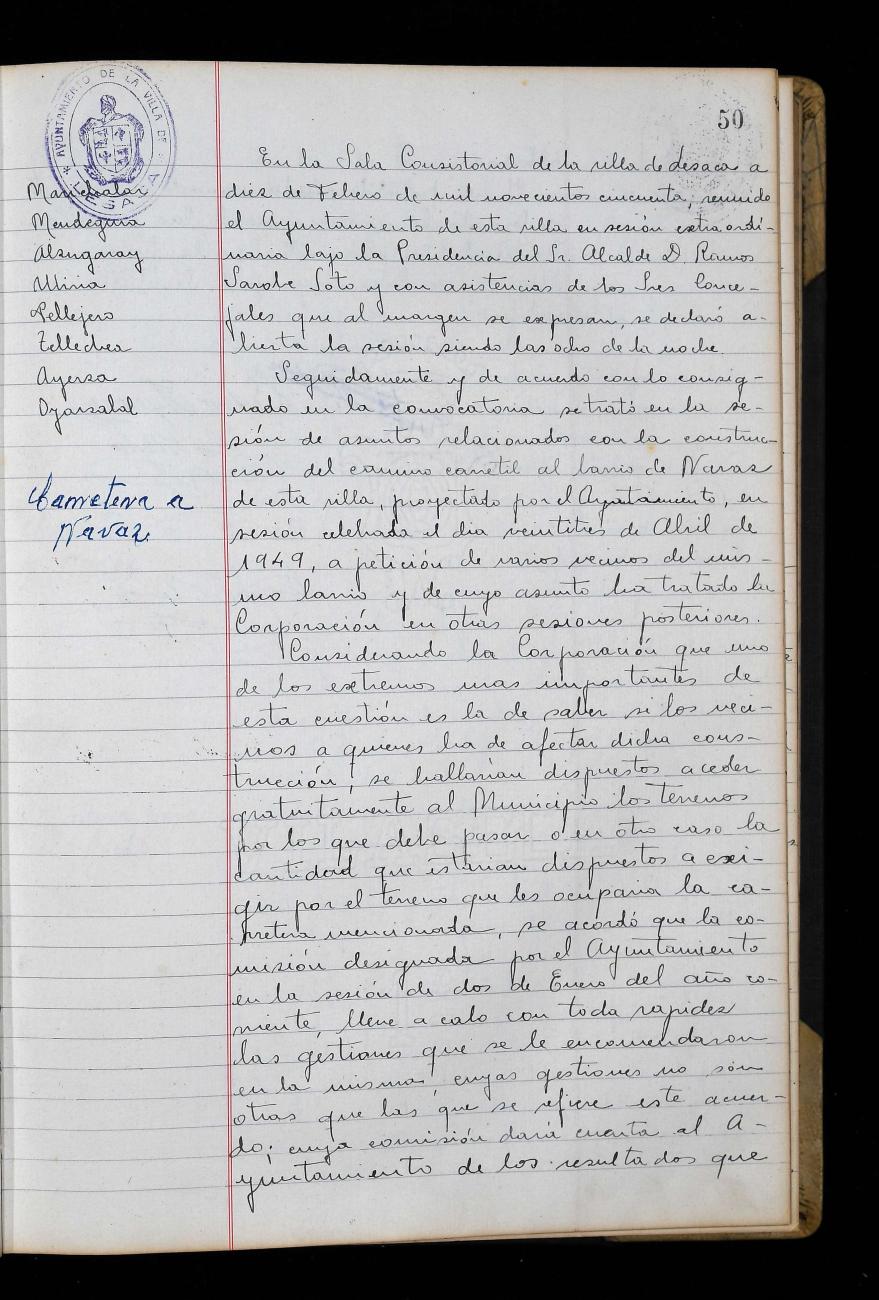 50
AYUNTAMIENTO DE LA VILLA DE LESACA
Marichalar
Mendeguia
Alzugaray
Pellejero
Tellechea
Ayerza
Oyarzabal
Carretera a
Navaz
En la Sala Consistorial de la villa de Lesaca a
diez de Febrero de mil novecientos cincuenta, reunido
el Ayuntamiento de esta villa en sesión extraordi-
naria bajo la Presidencia del Sr. Alcalde D. Ramos
Sarobe Soto y con asistencias de los Sres Conce-
jales que al margen se expresan, se declaró a-
bierta la sesión siendo las ocho de la noche.
Seguidamente y de acuerdo con lo consig-
nado en la convocatoria se trató en la se-
sión de asuntos relacionados con la construc-
ción del camino carretil al barrio de Navaz
de esta villa, proyectado por el Ayuntamiento, en
sesión celebrada el dia veintitres de Abril de
1949, a petición de varios vecinos del mis-
mo barrio y de cuyo asunto ha tratado la
Corporación en otras sesiones posteriores.
Considerando la Corporación que uno
de los extremos mas importantes de
esta cuestión es la de saber si los veci-
nos a quienes ha de afectar dicha cons-
trucción, se hallarian dispuestos a ceder
gratuitamente al Municipio los terrenos
por los que debe pasar o en otro caso la
cantidad que estarian dispuestos a exi-
gir por el terreno que les ocuparia la ca-
rretera mencionada, se acordó que la co-
misión designada por el Ayuntamiento
en la sesión de dos de Enero del año co-
rriente, lleve a cabo con toda rapidez
las gestiones que se le encomendaron
en la misma, cuyas gestiones no son
otras que las que se refiere este acuer-
do; cuya comisión dará cuenta al A-
yuntamiento de los resultados que